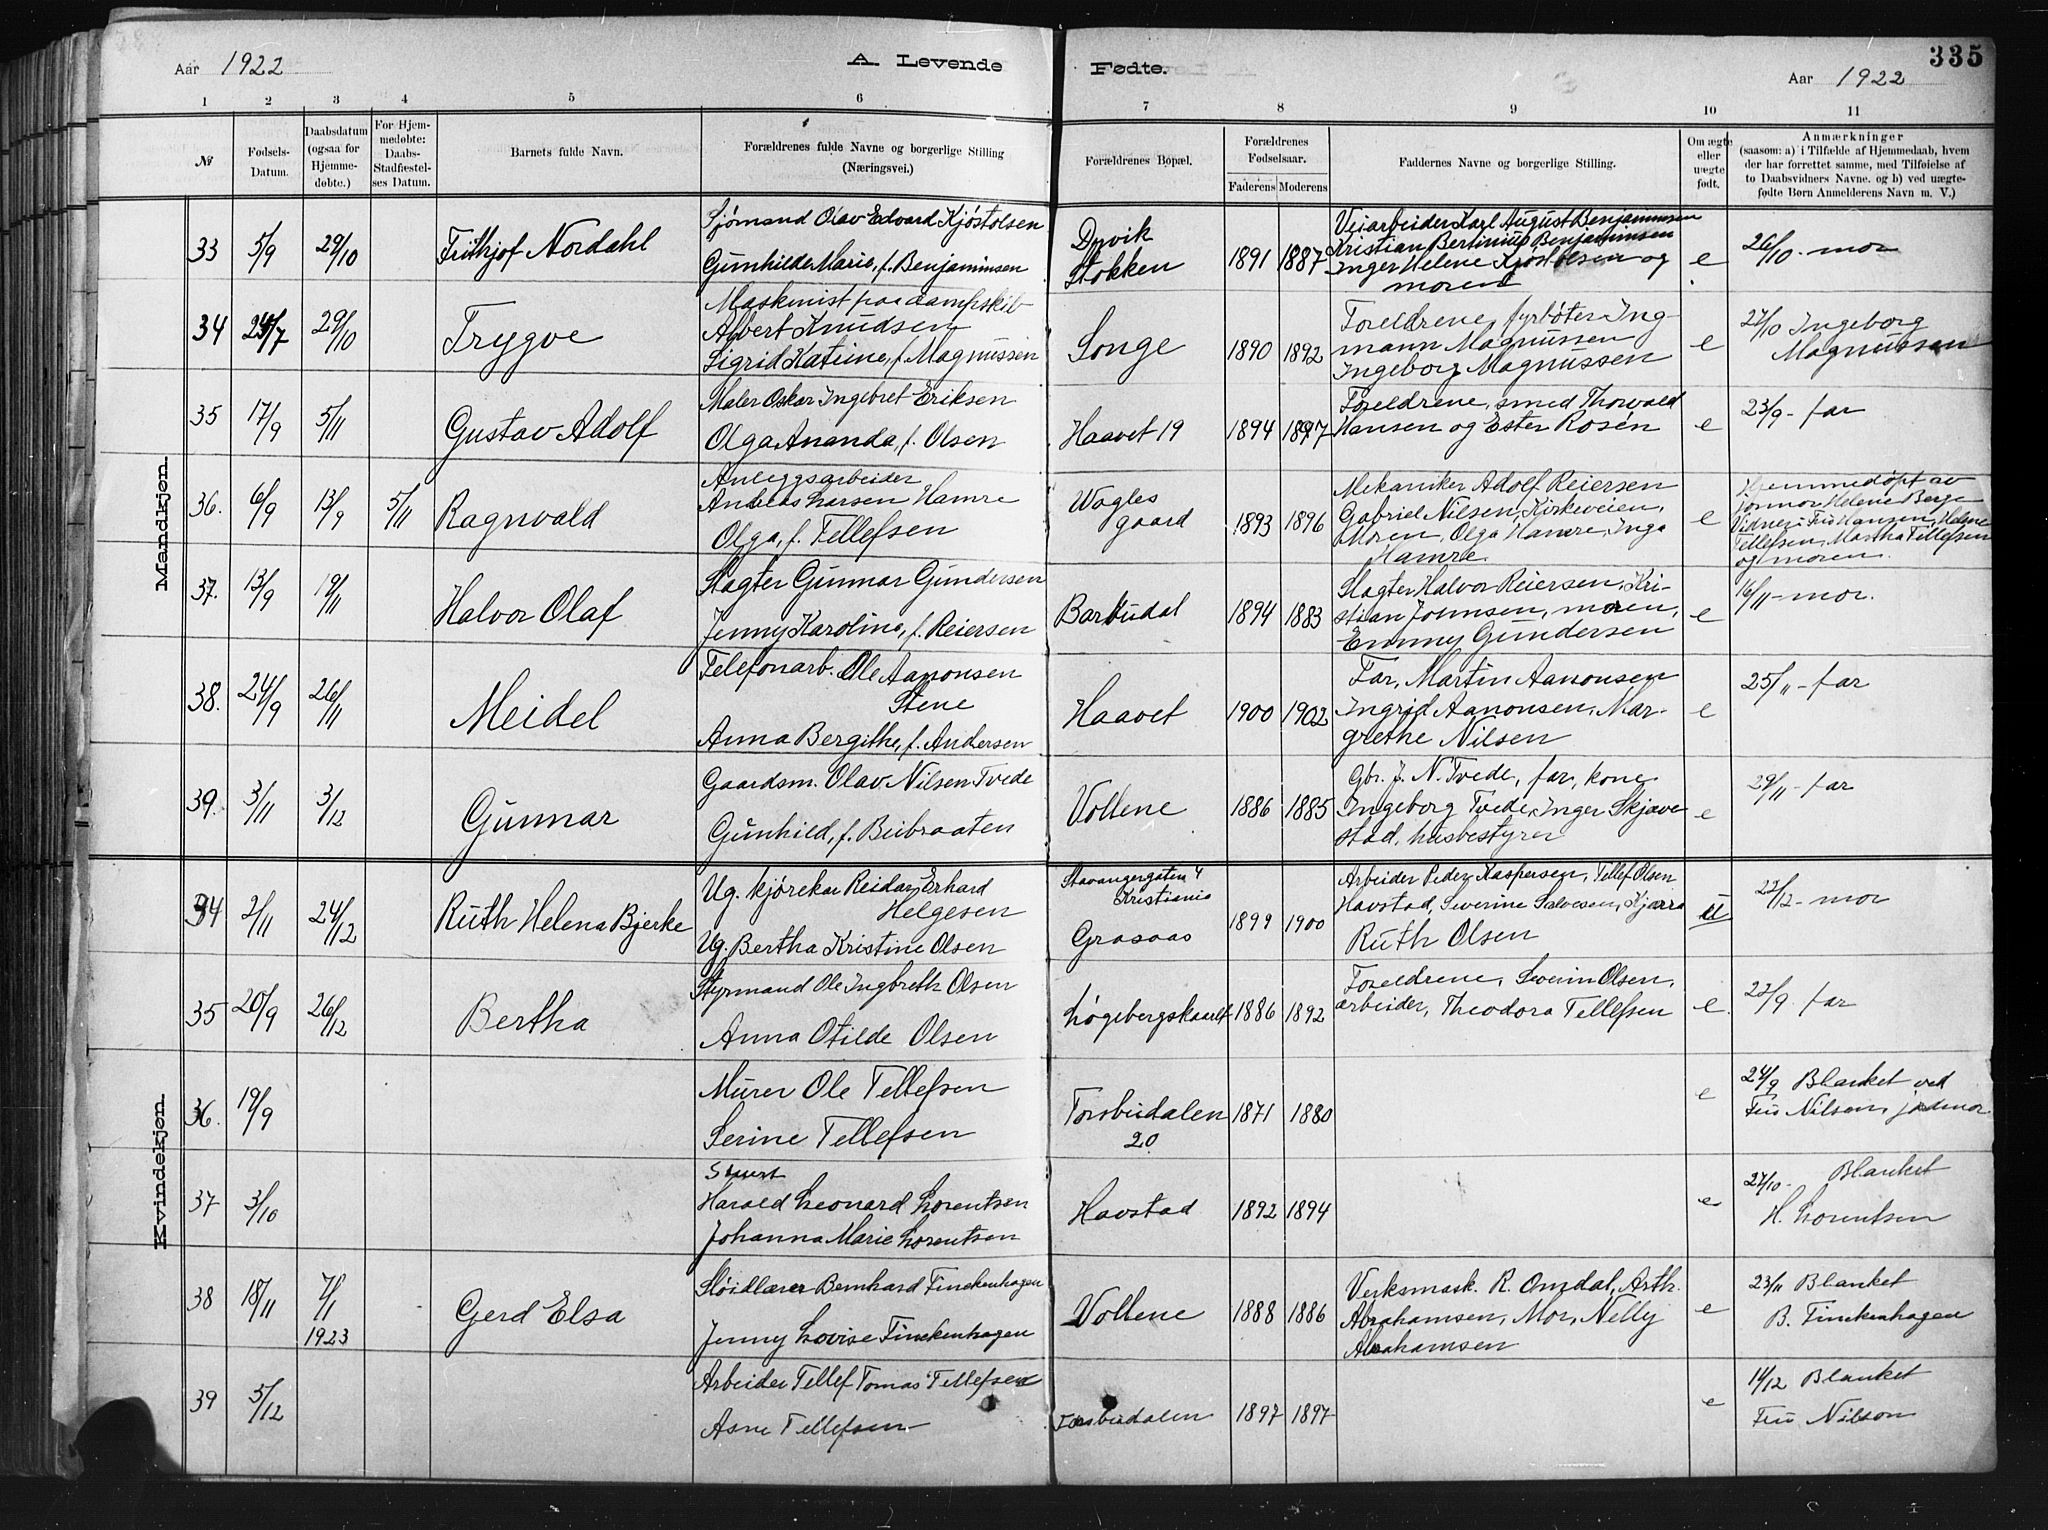 Aar 1922
A. Levende
Fødte.
335
Aar 1922
1 2 3 4 5 6 7 8 9 10 11
№
Fødsels-
Datum.
Daabsdatum
(ogsaa for
Hjemme-
døbte.)
For Hjem-
medøbte:
Daabs-
Stadfæstel-
ses Datum.
Barnets fulde Navn.
Forældrenes fulde Navne og borgerlige Stilling
(Næringsvei.)
Forældrenes Bopæl.
Forældrenes
Fødselsaar.
Faderens Moderens
Faddernes Navne og borgerlige Stilling.
Om ægte
eller
uægte
født.
Anmærkninger
(saasom: a) i Tilfælde af Hjemmedaab, hvem
der har forrettet samme, med Tilføielse af
to Daabsvidners Navne. og b) ved uægte-
fødte Børn Anmelderens Navn m. V.)
Mandkjøn.
33 5/9 29/10 Frithjof Nordahl
Sjømand Olav Edvard Kjøstolsen
Gunhilde Marie, f. Benjaminsen
Dyvik
Stokken
1891 1887
Veiarbeider Karl August Benjaminsen
Kristian Bertinius Benjaminsen
Inger Helene Kjøstolsen og
moren
e
26/10 - mor
34 24/7 29/10 Trygve
Maskinist paa dampskib
Albert Knudsen
Sigrid Katrine, f. Magnussen
Songe
1890 1892
Foreldrene, fyrbøter Ing-
mann Magnussen
Ingeborg Magnussen
e
27/10 Ingeborg
Magnussen
35 17/9 5/11 Gustav Adolf
Maler Oskar Ingebret Eriksen
Olga Ananda, f. Olsen
Haavet 19
1894 1897
Foreldrene, smed Thorvald
Hansen og Ester Rosén
e
23/9 - far
36. 6/9 13/9 5/11 Ragnvald
Anleggsarbeider
Andreas Larsen Hamre
Olga, f. Tellefsen
Wagles
gaard
1893 1896
Mekaniker Adolf Reiersen
Gabriel Nilsen, Kirkeveien,
Moren, Olga Hamre, Inga
Hamre
e
Hjemmedøpt av
jormor Helene Berge
Vidner: Fru Hansen, Helene
Tellefsen, Martha Tellefsen
og moren.
37. 13/9 19/11 Halvor Olaf
Slagter Gunnar Gundersen
Jenny Karoline, f. Reiersen
Barbudal
1894 1883
Slagter Halvor Reiersen, Kri-
stian Johnsen, moren,
Emmy Gundersen
e
16/11 - mor.
38. 24/9 26/11 Meidel
Telefonarb. Ole Aanonsen
Stene
Anna Bergithe, f. Andersen
Haavet
1900 1902
Far, Martin Aanonsen
Ingrid Aanonsen, Mar-
grethe Nilsen
e
25/11 - far
39. 3/11 3/12 Gunnar
Gaardsm. Olav Nilsen Tvede
Gunhild, f. Bubraaten
Vollene
1886 1885
Gbr. J. N. Tvede, far, kone
Ingeborg Tvede, Inger Skjave
stad, husbestyrer
e
29/11 - far
Kvindekjøn.
34 2/11 24/12 Ruth Helena Bjerke
Ug. kjørekar Reidar Erhard
Helgesen
Ug. Bertha Kristine Olsen
Stavangergaten 4
Kristiania
Grasaas
1899 1900
Arbeider Peder Kaspersen, Tellef Olsen
Havstad, Severine Salvesen, Kjærra
Ruth Olsen
u
22/12 - mor
35 20/9 26/12 Bertha
Styrmand Ole Ingbreth Olsen
Anna Otilde Olsen
Løgebergskaaret
1886 1892
Foreldrene, Severin Olsen,
arbeider, Theodora Tellefsen
e.
22/9. far
36. 19/9
Murer Ole Tellefsen
Serine Tellefsen
Torsbudalen
20
1871 1880
e
24/9 Blanket ved
Fru Nilson, jordmor
37 3/10
Stuert
Harald Leonard Lorentsen
Johanna Marie Lorentsen
Havstad
1892 1894
e
27/10 - Blanket
H. Lorentsen
38 18/11 7/1
1923
Gerd Elsa
Sløidlærer Bernhard Finckenhagen
Jenny Lovise Finckenhagen
Vollene
1888 1886
Verksmask. R. Omdal, Arth.
Abrahamsen, Mor, Nelly
Abrahamsen
e
23/11 Blanket
B. Finckenhagen
39 5/12
Arbeider Tellef Tomas Tellefsen
Asne Tellefsen
Torsbudalen
1897 1897
e
14/12 Blanket
Fru Nilson